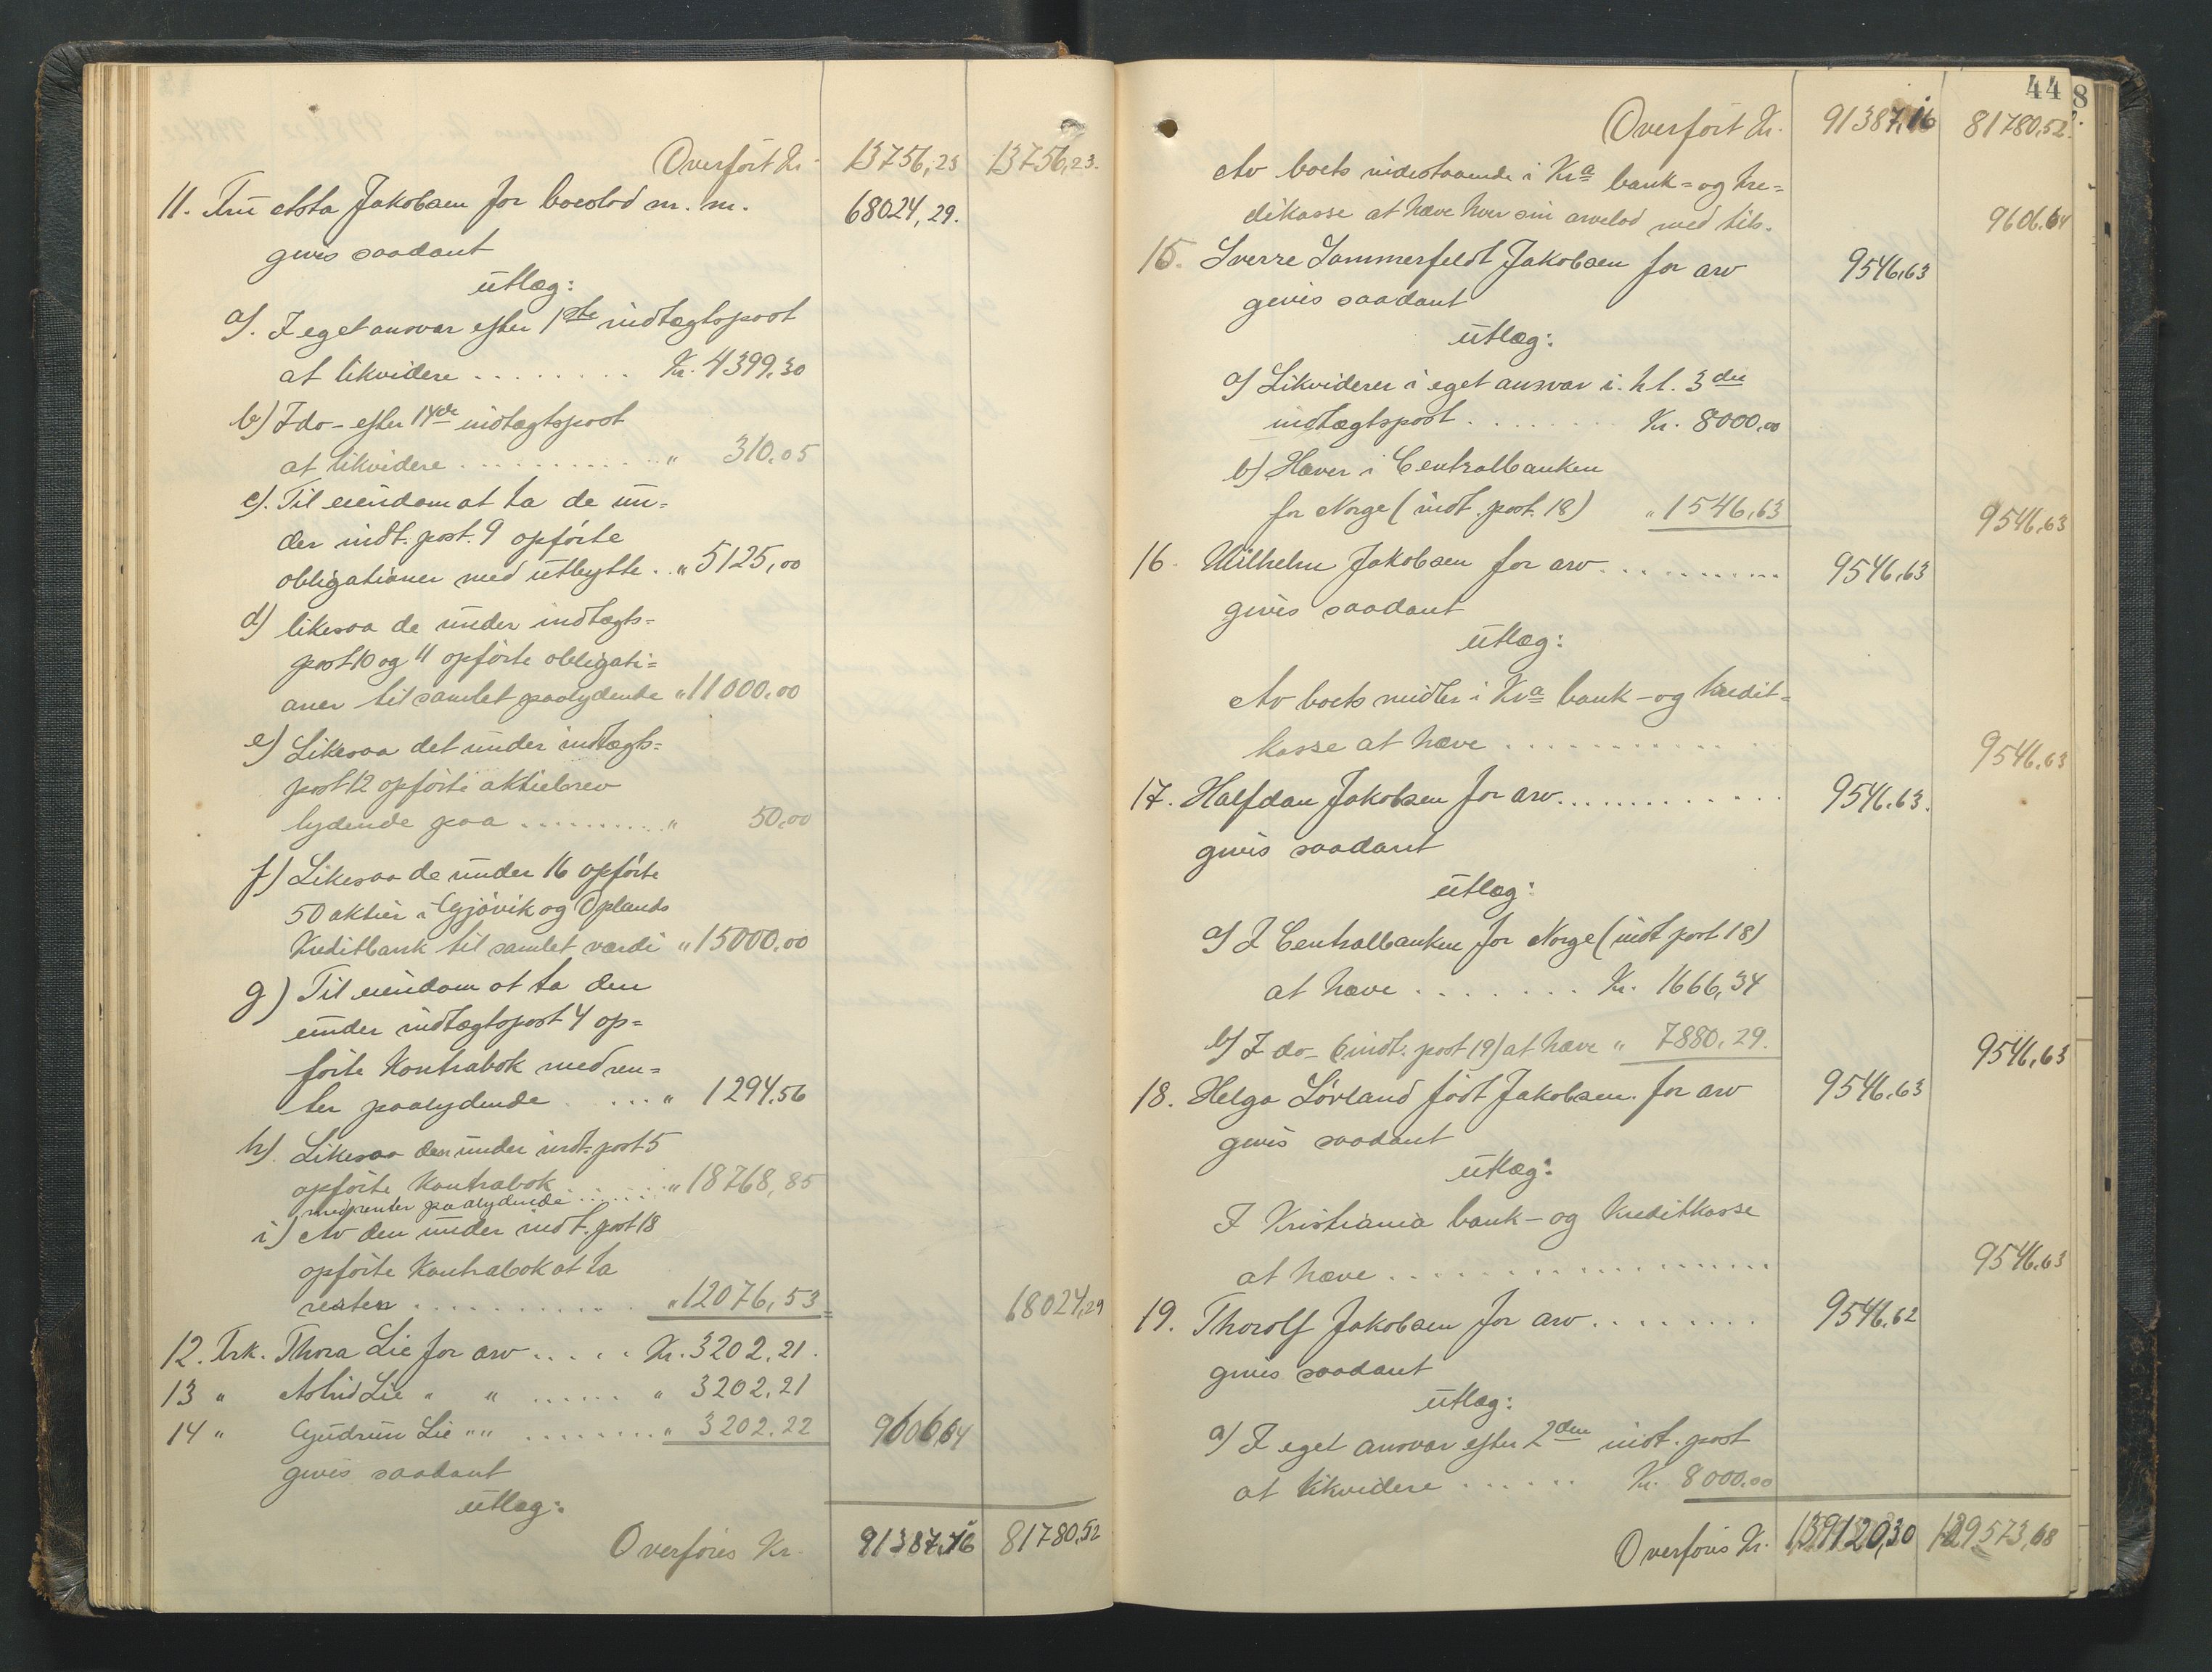 Overført Kr. 13756,23 13756,23.
11. Fru Asta Jakobsen for boeslod m. m. 68024,29.
givis saadant
utlæg:
a). I eget ansvar efter 1ste indtægtspost
at likvidere ........ Kr. 4399,30
b) I do- efter 14de indtægtspost
at likvidere ............ " 310,05
c). Til eiendom at ta de un=
der indt. post. 9 opførte
obligationer med utbytte .. " 5125,00
d) likesaa de under indtægts=
post 10 og 11 opførte obligati=
oner til samlet paalydende " 11000,00
e) Likesaa det under indtægts=
post 12 opførte aktiebrev
lydende paa .......... " 50,00
f) Likesaa de under 16 opførte
50 aktier i Gjøvik og Oplands
Kreditbank til samlet værdi " 15000,00
g) Til eiendom at ta den
under indtægtspost 4 op=
førte Kontrabok med ren=
ter paalydende .... " 1294,56
h). Likesaa den under indt. post 5
opførte Kontrabok ....... " 18768,85
med renter paalydende
i) Av den under indt. post 18
opførte Kontrabok at ta
resten ............ " 12076,53 68024,29
12. Frk. Thora Lie for arv ..... Kr. 3202,21.
13 " Astrid Lie " " ...... " 3202,21
14 " Gudrun Lie " " ......... " 3202,22 9606,64
givis saadant
utlæg:
Overføres Kr. 91387,16 81780,52
44
8
Overført Kr. 91387,16 81780,52.
Av boets indestaaende i Kra bank= og kre=
ditkasse at hæve hver sin arvelod med tils. 9606,64
15. Sverre Sommerfeldt Jakobsen for arv 9546,63
givis saadant
utlæg:
a) Likviderer i eget ansvar i. h. t. 3die
indtægtspost ........ Kr. 8000,00
b) Hæver i Centralbanken
for Norge (indt. post. 18) " 1546,63 9546,63
16. Wilhelm Jakobsen for arv ........... 9546,63
givis saadant
utlæg:
Av boets midler i Kra bank- og Kredit=
kasse at hæve ............. 9546,63
17. Halfdan Jakobsen for arv ............ 9546,63.
givis saadant
utlæg:
a) I Centralbanken for Norge (indt. post 18)
at hæve ....... Kr. 1666,34
b) I do- (indt. post 19) at hæve " 7880,29. 9546,63
18. Helga Løvland født Jakobsen. for arv 9546,63
givis saadant
utlæg:
I Kristiania bank- og Kreditkasse
at hæve ................... 9546,63
19. Thorolf Jakobsen for arv ......... 9546,62
givis saadant
utlæg:
a) I eget ansvar efter 2den indt. post
at likvidere ...... Kr. 8000,00
Overføris Kr. 139120,30 129573,68